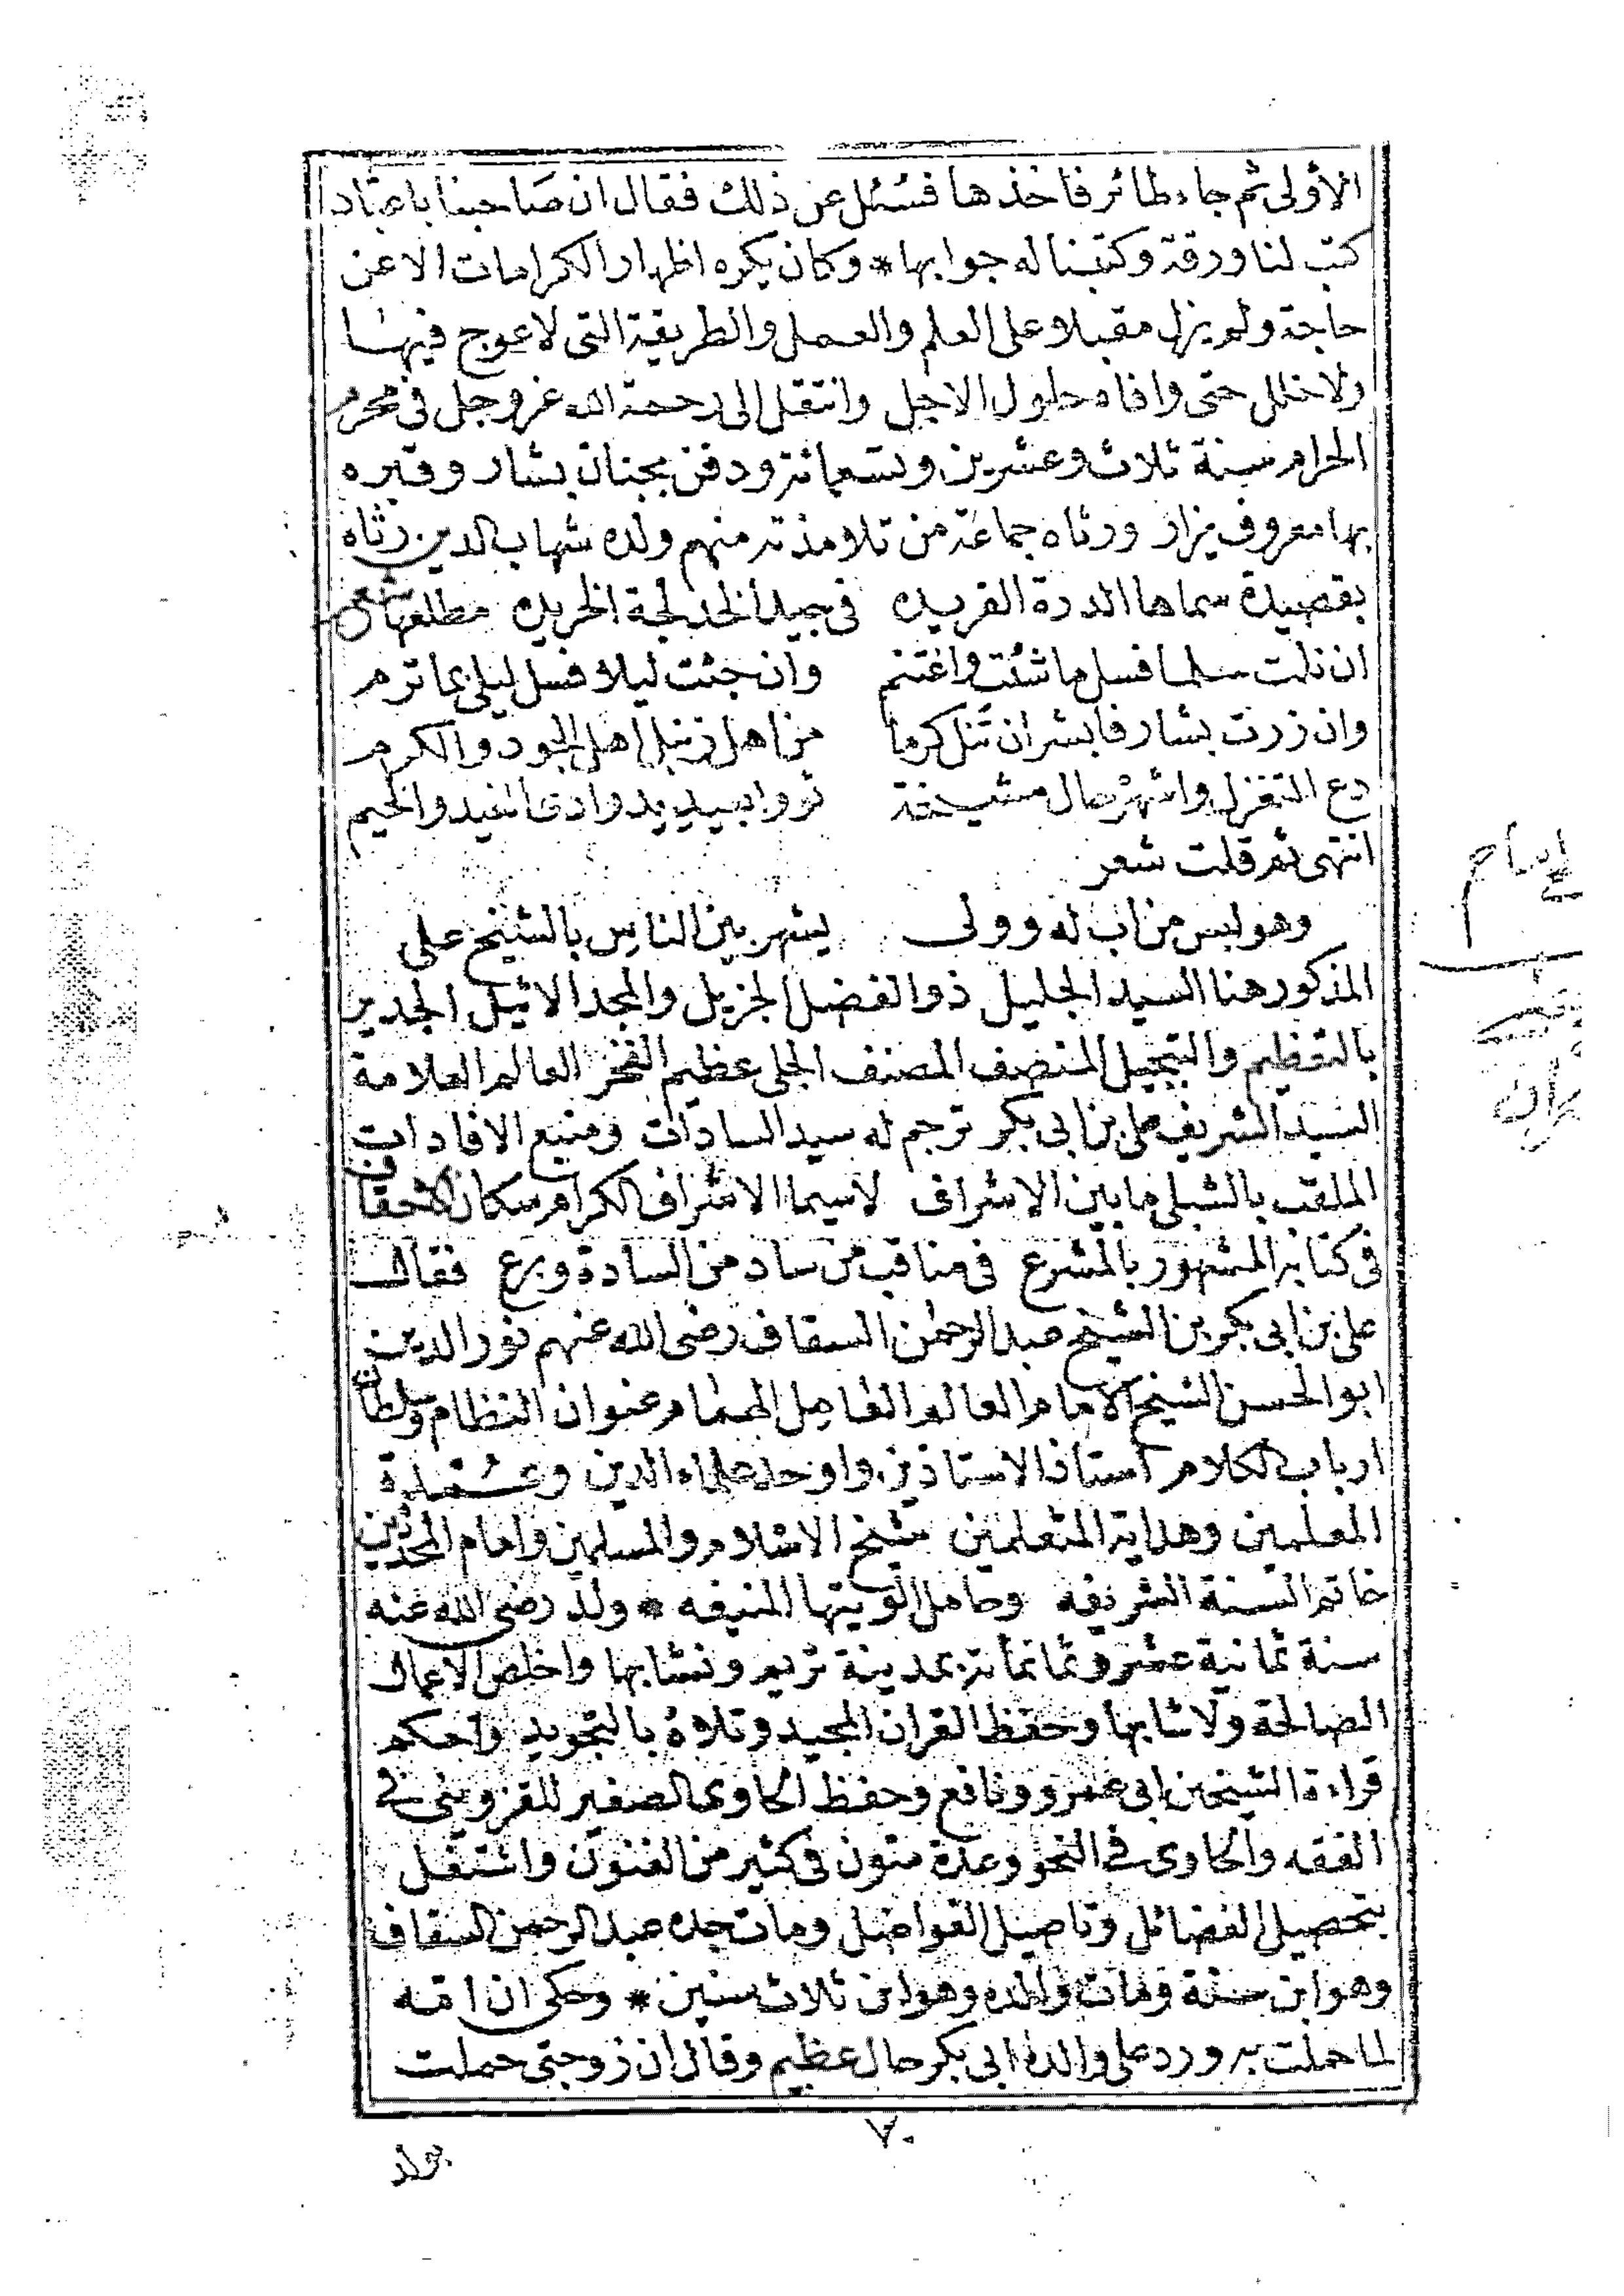 الأولى ثم جاء طائر فاخذها فسئل عن ذلك فقال ان صَاحبنا باعباد
كتب لنا ورقة وكتبنا له جوابها * وكان يكره اظهار الكرامات الا عن
حاجة ولم يزل مقبلا وعلى العلم والعمل والطريقة التى لا عوج فيها
ولا خلل حتى وافاه حلول الاجل وانتقل الى رحمة الله عز وجل فى محرم
الحرام سنة ثلاث وعشرين وتسعمائة ودفن بجنان بشار وقبره
بها معروف يزار ورثاه جماعة من تلامذته منهم ولده شهاب الدين رثاه
بقصيدة سماها الدرة الفريده فى جيد الخدلجة الخريده مطلعها شعر
ان نلت سلما فسل ما شئت واغتنم وان جئت ليلا فسل ليلى بما ترم
وان زرت بشار فابشر ان تنل كرما من اهل زنبل اهل الجود والكرم
دع التغزل واشهر حال مشيخة ثووا ببيد يد وادى الغيد والخيم
انتهى ثم قلت شعر
وهو لبس من اب له وولى يشهر بين الناس بالشيخ على
المذكور هنا السيد الجليل ذو الفضل الجزيل والمجد الاثيل الجدير
بالتعظيم والتبجيل المنصف المصنف الجلى عظيم الفخر العالم العلامة
السيد الشريف على بن ابى بكر ترجم له سيد السادات ومنبع الافادات
الملقب بالشبلى ما بين الاشراف لا سيما الاشراف الكرام سكان الاحقاف
فى كتابه المشهور بالمشرع فى مناقب من ساد من السادة وبرع فقال
على بن ابى بكر بن الشيخ عبد الرحمٰن السقاف رضى الله عنهم نور الدين
ابو الحسن الشيخ الامام العالم العامل الهمام عنوان النظام وسلطان
ارباب الكلام استاذ الاستاذين واوحد علماء الدين وعمدة
المعلمين وهداية المتعلمين شيخ الاسلام والمسلمين وامام المحدثين
خاتم السنة الشريفه وحامل الويتها المنيفه * ولد رضى الله عنه
سنة ثمانية عشر وثمانمائة بمدينة تريم ونشا بها واخلص الاعمال
الصالحة ولا شابها وحفظ القران المجيد وتلاه بالتجويد واحكم
قراءة الشيخين ابى عمرو ونافع وحفظ الحاوى الصغير للقزوينى فى
الفقه والحاوى فى النحو وعدة متون فى كثير من الفنون واشتغل
بتحصيل الفضائل وتاصيل الفواضل ومات جده عبد الرحمن السقاف
وهو ابن سنة ومات والده وهو ابن ثلاث سنين * وحكى ان امه
لما حملت به ورد على والده ابى بكر حال عظيم وقال ان زوجتى حملت
٧٠
بولد